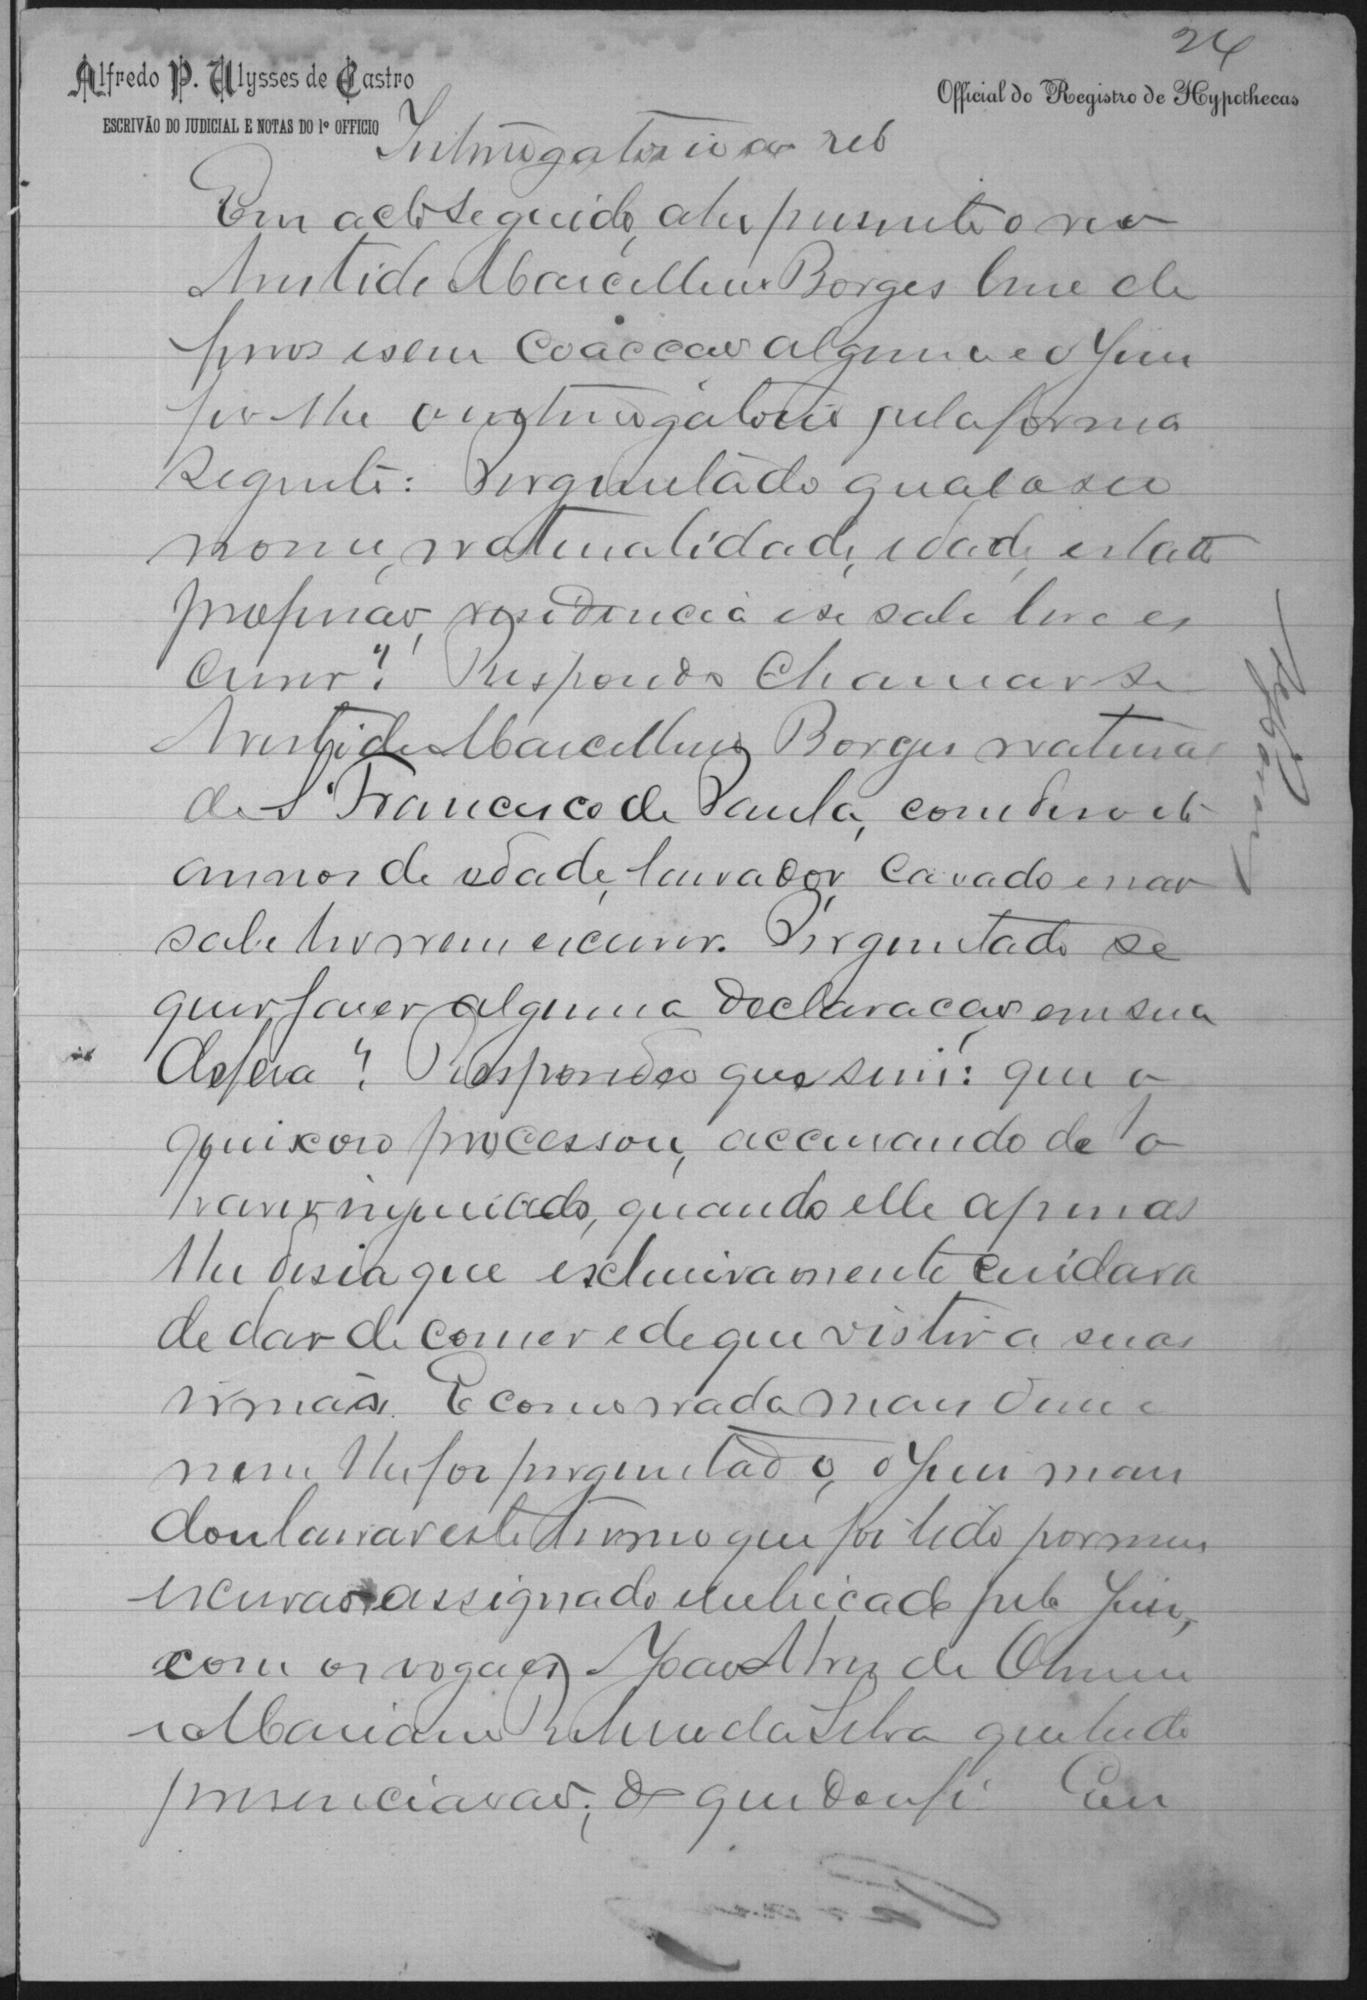 24
Alfredo P. Ulysses de Castro
Official do Registro de Hypothecas
ESCRIVÃO DO JUDICIAL E NOTAS DO 1º OFFICIO
Interrogatorio ao reo
Em acto seguido, ahi presente o reo
Aristide Marcellino Borges livre de
ferros e sem coacção alguma e o Juiz
fez-lhe o interrogatorio pela forma
seguinte: Perguntado qual o seu
nome, naturalidade, edade, estado
profissão, residencia e se sabe ler e es
crever? Respondeo chamar-se
Aristide Marcellino Borges natural
de S. Francisco de Paula, com
annos de edade, lavrador, casado e não
sabe ler nem escrever. Perguntado se
quer fazer alguma declaração em sua
defesa? Respondeo que sim: que o
queixoso processou, accusando de o
haver injuriado, quando elle apenas
lhe disia que exclusivamente cuidava
de dar de comer e de que vistir a suas
irmãs. E como nada mais disse
nem lhe foi perguntado, o Juiz man
dou lavrar este termo que foi lido por mim
escrivão assignado e rubricado pelo Juiz,
com os vogaes João Alves de
e Mariano da Silva que tudo
presenciarão; do que dou fé. Eu